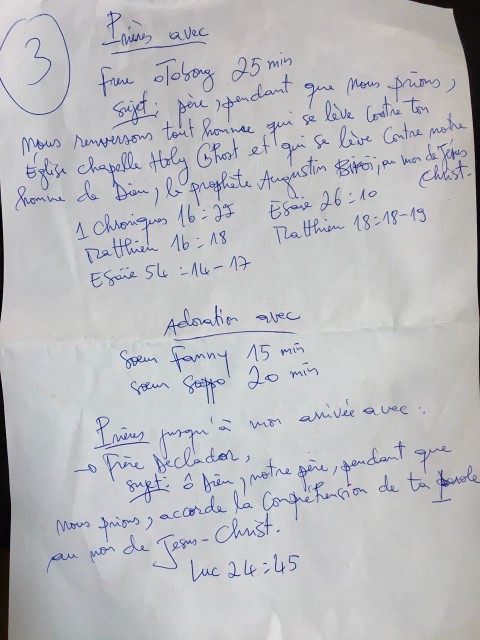 3
Prières avec
Frère oToborg 25 min
Sujet: père, pendant que nous prions,
nous renversons tout homme qui se lève contre ton
Église chapelle Holy Ghost et qui se lève contre notre
homme de Dieu, le prophète Augustin au nom de Jésus
Christ.
1 chroniques 16:22 Esaïe 26:10
Matthieu 16:18 Matthieu 18:18-19
Esaïe 54:14-17
Adoration avec
Soeur Fanny 15 min
Soeur 20 min
Prières jusqu'à mon arrivée avec:
→ Frère Declador,
Sujet: ô Dieu, notre père, pendant que
nous prions, accorde la compréhension de ta parole
au nom de Jesus-Christ.
Luc 24:45